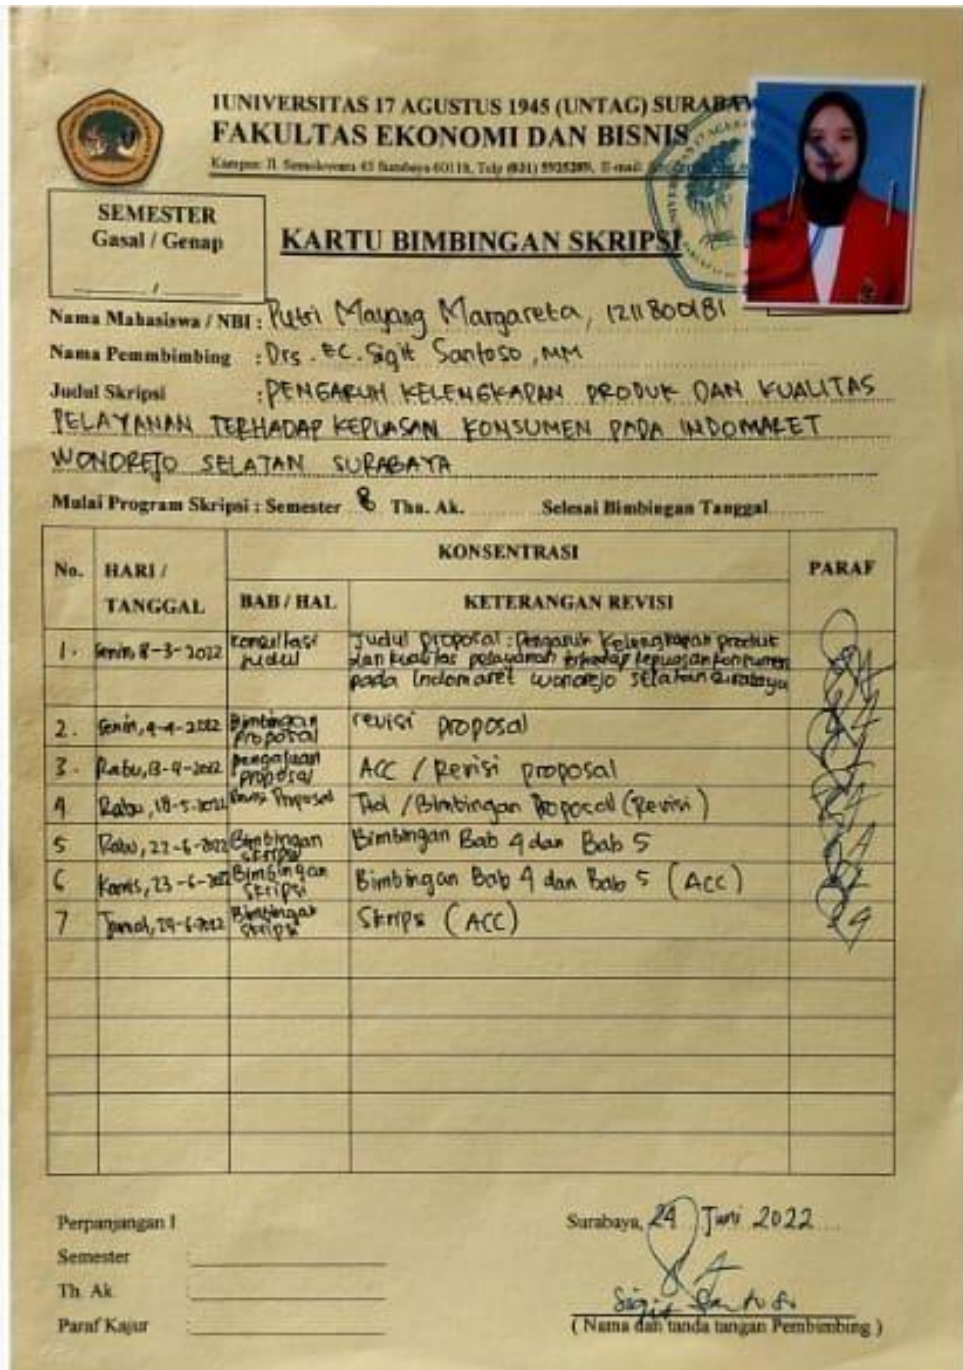 IUNIVERSITAS 17 AGUSTUS 1945 (UNTAG) SURABAY
FAKULTAS EKONOMI DAN BISNIS
Kampus: Jl. Semolowaru 45 Surabaya 60118, Telp (031) 5925289, E-mail:
SEMESTER
Gasal / Genap
/
KARTU BIMBINGAN SKRIPSI
Nama Mahasiswa / NBI : Putri Mayang Margareta, 1211800181
Nama Pemmbimbing : Drs. EC. Sigit Santoso, MM
Judul Skripsi : PENGARUH KELENGKAPAN PRODUK DAN KUALITAS
PELAYANAN TERHADAP KEPUASAN KONSUMEN PADA INDOMARET
WONOREJO SELATAN SURABAYA
Mulai Program Skripsi : Semester 8 Thn. Ak. Selesai Bimbingan Tanggal
No. HARI / TANGGAL KONSENTRASI PARAF
BAB / HAL KETERANGAN REVISI
1. Senin, 8-3-2022 Konsultasi judul Judul proposal : Pengaruh Kelengkapan produk
dan kualitas pelayanan terhadap kepuasan konsumen
pada Indomaret wonorejo selatan Surabaya
2. Senin, 4-4-2022 Bimbingan proposal revisi proposal
3. Rabu, 13-4-2022 pengajuan proposal ACC / Revisi proposal
4 Rabu, 18-5-2022 Revisi Proposal / Bimbingan Proposal (Revisi)
5 Rabu, 22-6-2022 Bimbingan skripsi Bimbingan Bab 4 dan Bab 5
6 Kamis, 23-6-2022 Bimbingan skripsi Bimbingan Bab 4 dan Bab 5 (ACC)
7 Jumat, 24-6-2022 Bimbingan skripsi Skrips (ACC)
Perpanjangan I
Semester :
Th. Ak :
Paraf Kajur :
Surabaya, 24 Juni 2022
Sigit Santoso
( Nama dan tanda tangan Pembimbing )